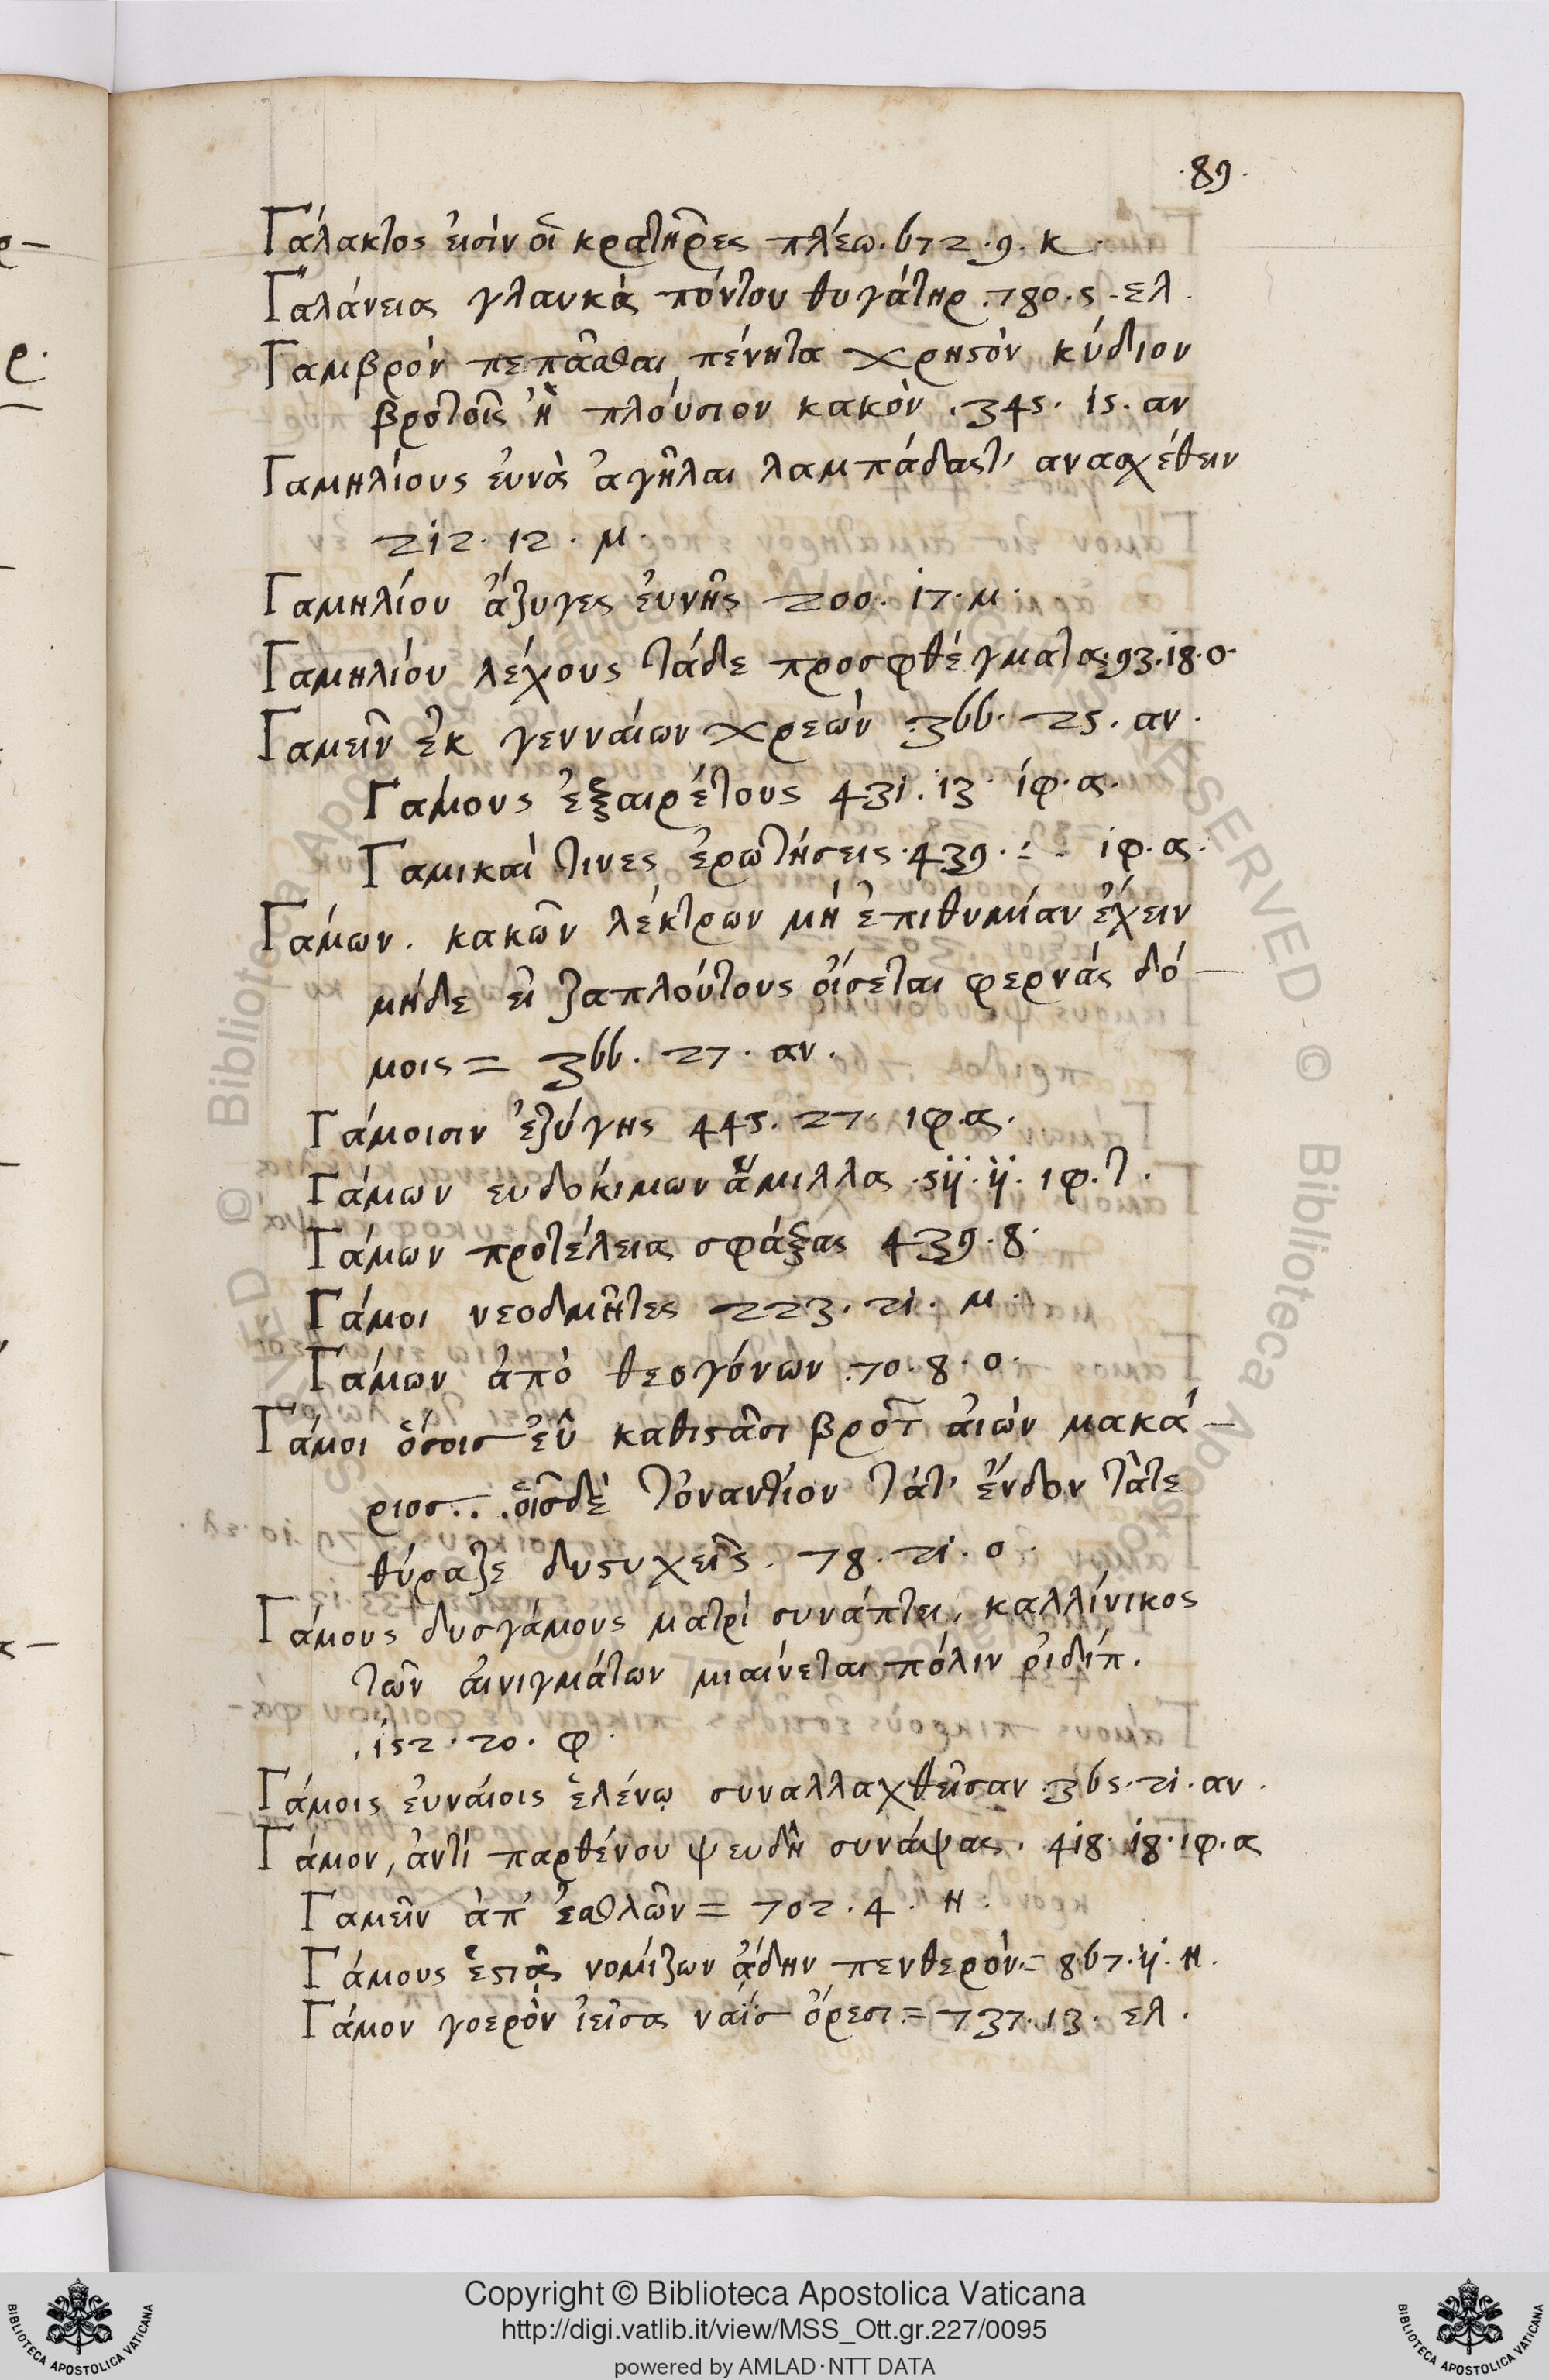 ·89·
Γάλακτος εἰσὶν οἱ κρατῆρες πλέω. 672. 9. κ.
Γαλάνεια γλαυκὰ πόντου θυγάτηρ. 780. 5. ελ.
Γαμβρὸν πεπᾶσθαι πένητα χρηστὸν κύδιον
βροτοῖς ἢ πλούσιον κακὸν. 345. 15. αν
Γαμηλίους εὐνὰς ἀγῆλαι λαμπάδας τ' ανασχέθειν
212. 12. μ.
Γαμηλίου ἄζυγες εὐνῆς 200. 17. μ.
Γαμηλίου λέχους τάδε προσφθέγματα. 93. 18. ο.
Γαμεῖν ἐκ γενναίων χρεὼν. 366. 25. αν.
Γάμους ἐξαιρέτους 431. 13. ιφ. α.
Γαμικαί τινες ἐρωτήσεις. 439. : - ιφ. α.
Γάμων. κακῶν λέκτρων μὴ ἐπιθυμίαν ἔχειν
μήδε εἰ ζαπλούτους οἴσεται φερνὰς δό-
μοις = 366. 27. αν.
Γάμοισιν ἐζύγης 445. 27. ιφ. α.
Γάμων ευδοκίμων ἅμιλλα. 511. 11. ιφ. τ.
Γάμων προτέλεια σφάξας 439. 8.
Γάμοι νεοδμῆτες 223. 21. μ.
Γάμων ἀπὸ θεογόνων. 70. 8. ο.
Γάμοι ὅσοις εὖ καθιστᾶσι βροτ αἰὼν μακά-
ριος... οἷς δὲ τοναντίον τάτ' ἔνδον τᾶτε
θύραζε δυστυχεῖς. 78. 21. ο.
Γάμους δυσγάμους ματρί συνάπτει, καλλίνικος
τῶν αἰνιγμάτων μιαίνεται πόλιν οἰδίπ.
152. 20. φ.
Γάμοις εὐναίοις ἑλένῳ συναλλαχθεῖσαν. 365. 21. αν.
Γάμον, ἀντί παρθένου ψευδῆ συνάψας. 418. 18. ιφ. α
Γαμεῖν ἀπ' ἐσθλῶν = 702. 4. η.
Γάμους ἑστιᾷς νομίζων ᾅδην πενθερὸν = 867. 11. η.
Γάμον γοερὸν ἱεῖσα ναῒς ὄρεσι = 737. 13. ελ.
Copyright © Biblioteca Apostolica Vaticana
http://digi.vatlib.it/view/MSS_Ott.gr.227/0095
powered by AMLAD·NTT DATA